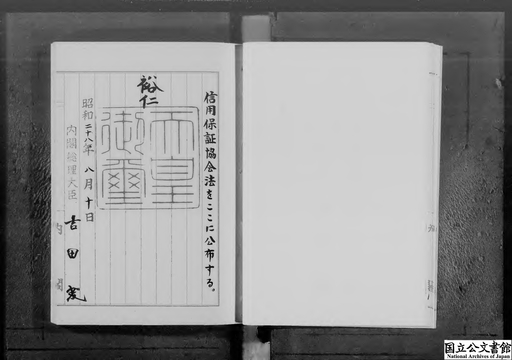 信用保証協会法をここに公布する。
裕仁
天皇御璽
昭和二十八年八月十日
内閣総理大臣 吉田茂
国立公文書館
National Archives of Japan